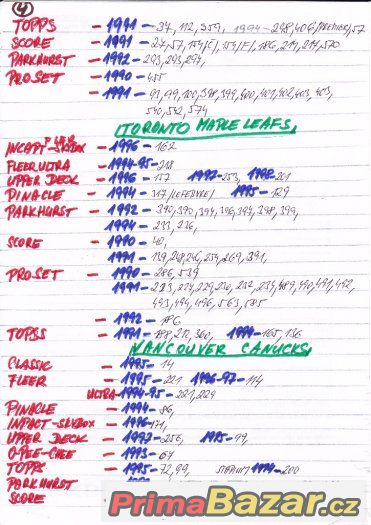 4
TOPPS - 1991 - 37, 112, 359, 1994 - 298, 406/PREMIER/57
SCORE - 1991 - 27, 57,
PARKHURST - 1992 - 293, 293, 294,
PROSET - 1990 - 455
- 1991 - 91, 99, 100, 398, 399, 400, 401, 402, 403, 403,
540, 542, 574
TORONTO MAPLE LEAFS,
- 1996 - 162
FLEER ULTRA - 1994-95 - 218
UPPER DECK - 1996 - 157 1997 - 253, 1998 - 201
PINACLE - 1994 - 317/LEFEBVRE/ 1995 - 129
PARKHURST - 1992 - 390, 390, 394, 396, 397, 398, 399,
- 1994 - 233, 236,
SCORE - 1990 - 40,
- 1991 - 139, 248, 246, 254, 269, 391,
PROSET - 1990 - 286, 539
1991 - 223, 224, 229, 230, 232, 234, 489, 490, 491, 492,
493, 494, 496, 563, 585
- 1992 - 186,
TOPSS - 1991 - 188, 212, 360, 1994 - 165, 136
VANCOUVER CANUCKS,
CLASSIC - 1995 - 14
FLEER - 1995 - 221 1996-97 - 114
ULTRA - 1994-95 - 221, 229
PINACLE - 1994 - 86,
INPACT-SKYBOX - 1996 - 171,
UPPER DECK - 1997 - 256, 1995 - 99,
O-PEE-CHEE - 1993 - 67
TOPPS - 1995 - 72, 99, 1994 - 200
PARKHURST
SCORE
PrimaBazar.cz